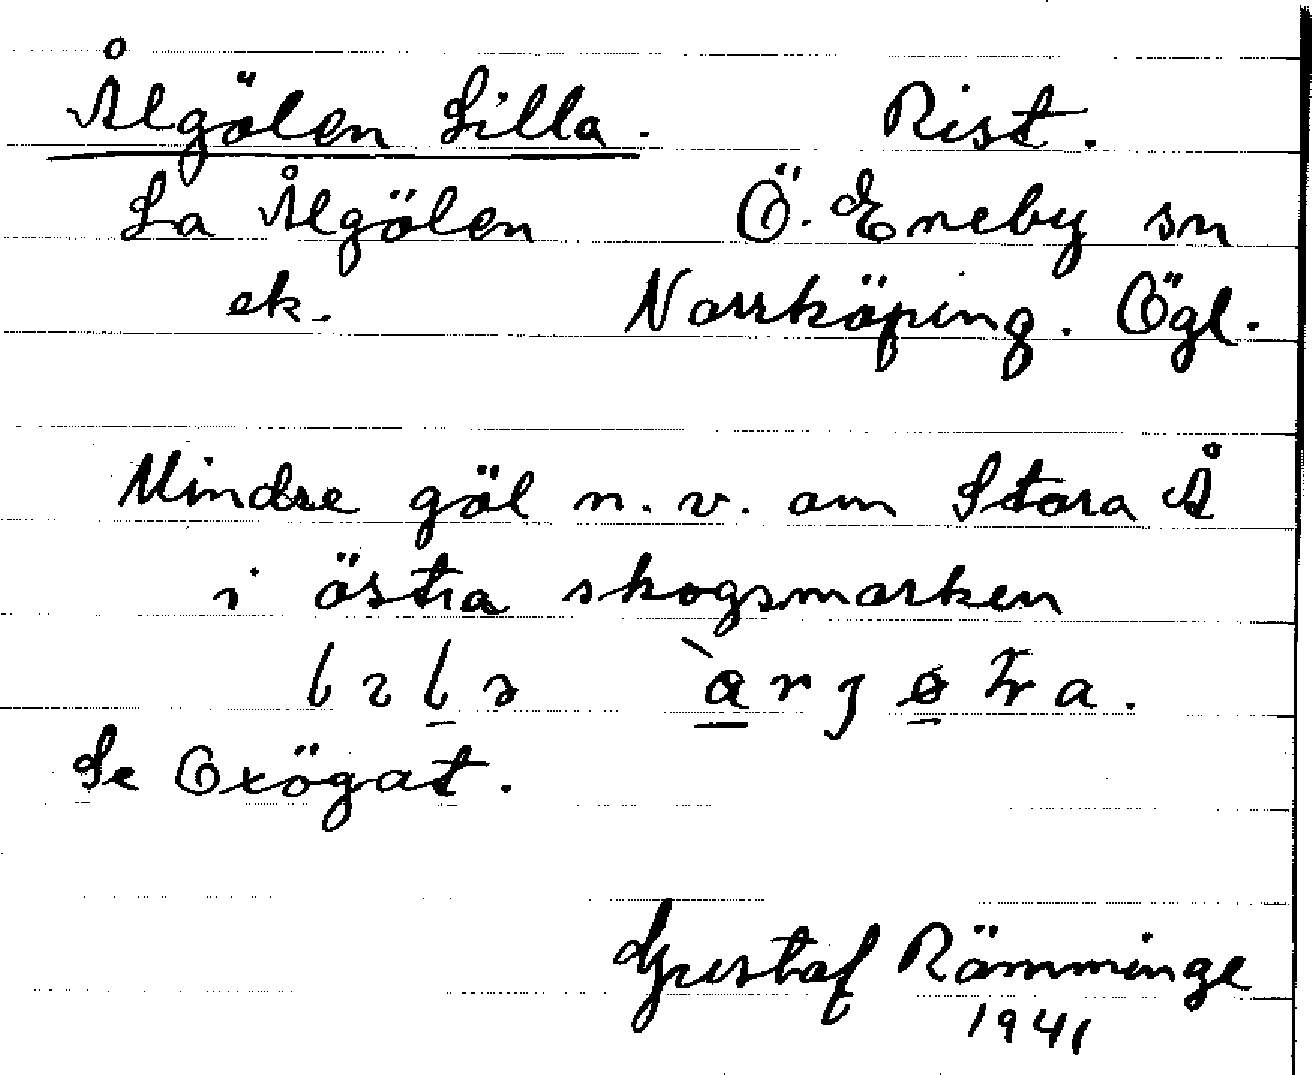 Ålgölen Lilla. Rist.
La Ålgölen Ö. Eneby sn
ek. Norrköping. Ögl.
Mindre göl n.v. om Stora Å
i östra skogsmarken
Se Oxögat.
Gustaf Rämminge
1941